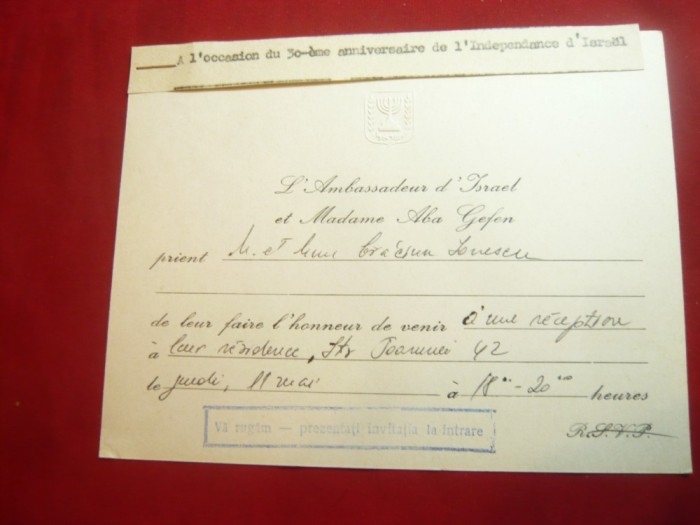 A l'occasion du 30-ème anniversaire de l'Independance d'Israël
L'Ambassadeur d'Israel
et Madame Aba Gefen
prient M. et Mme Crăciun Ionescu
de leur faire l'honneur de venir à une réception
à leur résidence, Str Ioanid 42
le jeudi, 11 mai à 18⁰⁰-20⁰⁰ heures
Vă rugăm — prezentați invitația la intrare
R.S.V.P.